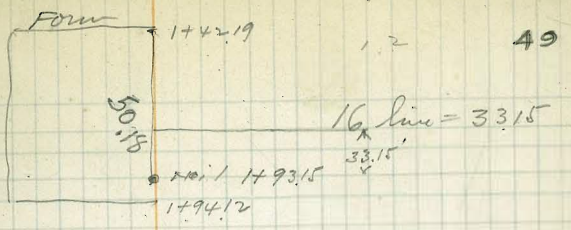 Form
1+42.19
1.2
49
50.18
16 line = 33.15
33.15'
nail 1+93.15
1+94.12